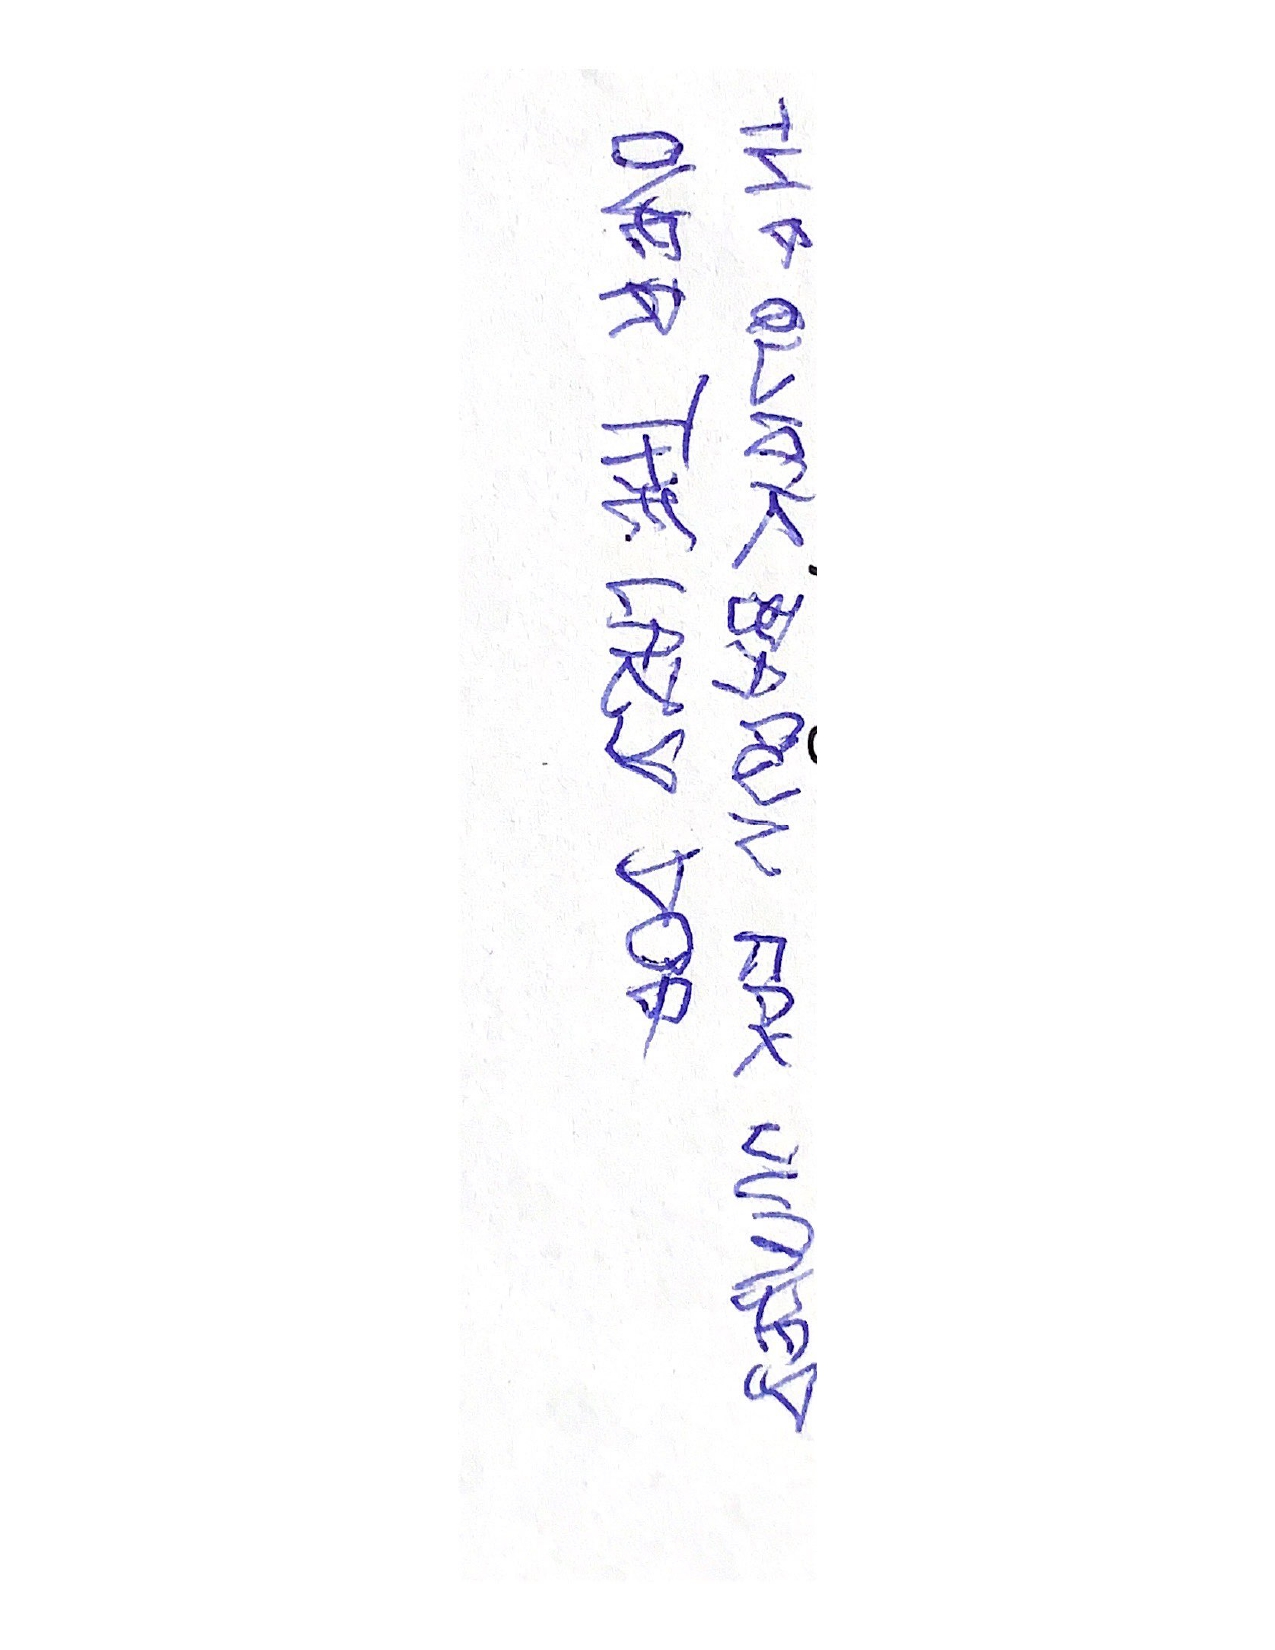 THE QUICK BROWN FOX JUMPED
OVER THE LAZY DOG